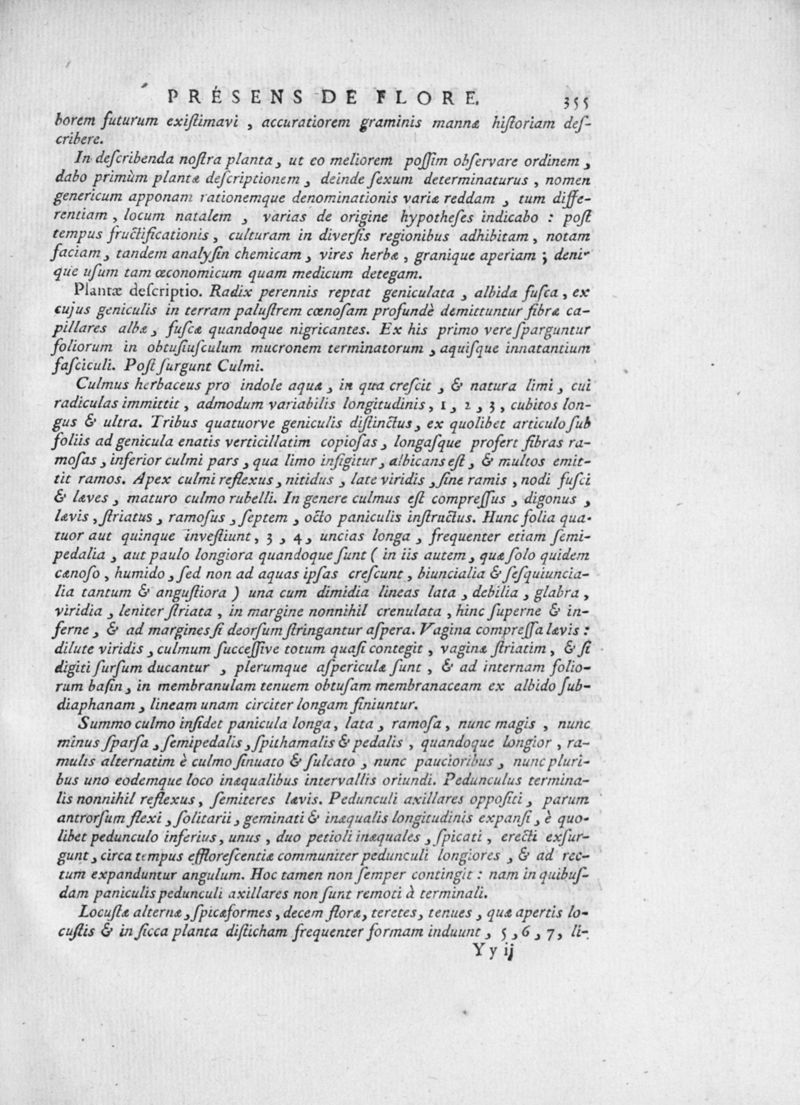 PRÉSENS DE FLORE. 355
borem futurum exiſtimavi , accuratiorem graminis mannæ hiſtoriam deſ-
cribere.
In deſcribenda noſtra planta, ut eo meliorem poſſim obſervare ordinem,
dabo primùm plantæ deſcriptionem, deinde ſexum determinaturus , nomen
genericum apponam rationemque denominationis variæ reddam , tum diffe-
rentiam , locum natalem , varias de origine hypotheſes indicabo : poſt
tempus fructificationis, culturam in diverſis regionibus adhibitam, notam
faciam, tandem analyſin chemicam, vires herbæ , granique aperiam ; deni-
que uſum tam œconomicum quam medicum detegam.
Plantæ deſcriptio. Radix perennis reptat geniculata , albida fuſca, ex
cujus geniculis in terram paluſtrem cœnoſam profundè demittuntur fibræ ca-
pillares albæ, fuſcæ quandoque nigricantes. Ex his primo vere ſparguntur
foliorum in obtuſiuſculum mucronem terminatorum , aquiſque innatantium
faſciculi. Poſt ſurgunt Culmi.
Culmus herbaceus pro indole aquæ, in qua creſcit , & natura limi, cui
radiculas immittit, admodum variabilis longitudinis, 1, 2, 3, cubitos lon-
gus & ultra. Tribus quatuorve geniculis diſtinctus, ex quolibet articulo ſub
foliis ad genicula enatis verticillatim copioſas, longaſque profert fibras ra-
moſas, inferior culmi pars, qua limo infigitur, albicans eſt, & multos emit-
tit ramos. Apex culmi reflexus, nitidus , late viridis, ſine ramis , nodi fuſci
& læves , maturo culmo rubelli. In genere culmus eſt compreſſus , digonus ,
lævis , ſtriatus , ramoſus , ſeptem , octo paniculis inſtructus. Hunc folia qua-
tuor aut quinque inveſtiunt, 3, 4, uncias longa , frequenter etiam ſemi-
pedalia , aut paulo longiora quandoque ſunt ( in iis autem, quæ ſolo quidem
cænoſo , humido, ſed non ad aquas ipſas creſcunt, biuncialia & ſeſquiuncia-
lia tantum & anguſtiora ) una cum dimidia lineas lata , debilia , glabra ,
viridia , leniter ſtriata , in margine nonnihil crenulata , hinc ſuperne & in-
ferne, & ad margines ſi deorſum ſtringantur aſpera. Vagina compreſſa lævis :
dilute viridis , culmum ſucceſſive totum quaſi contegit , vaginæ ſtriatim , & ſi
digiti ſurſum ducantur , plerumque aſpericulæ ſunt , & ad internam folio-
rum baſin, in membranulam tenuem obtuſam membranaceam ex albido ſub-
diaphanam, lineam unam circiter longam finiuntur.
Summo culmo inſidet panicula longa, lata , ramoſa , nunc magis , nunc
minus ſparſa , ſemipedalis, ſpithamalis & pedalis , quandoque longior , ra-
mulis alternatim è culmo ſinuato & ſulcato , nunc paucioribus , nunc pluri-
bus uno eodemque loco inæqualibus intervallis oriundi. Pedunculus termina-
lis nonnihil reflexus, ſemiteres lævis. Pedunculi axillares oppoſiti , parum
antrorſum flexi , ſolitarii, geminati & inæqualis longitudinis expanſi, è quo-
libet pedunculo inferius, unus , duo petioli inæquales , ſpicati , erecti exſur-
gunt, circa tempus effloreſcentiæ communiter pedunculi longiores , & ad rec-
tum expanduntur angulum. Hoc tamen non ſemper contingit : nam in quibuſ-
dam paniculis pedunculi axillares non ſunt remoti à terminali.
Locuſtæ alternæ, ſpicæformes, decem floræ, teretes, tenues , quæ apertis lo-
cuſtis & in ſicca planta diſticham frequenter formam induunt, 5, 6, 7, li-
Y y ij